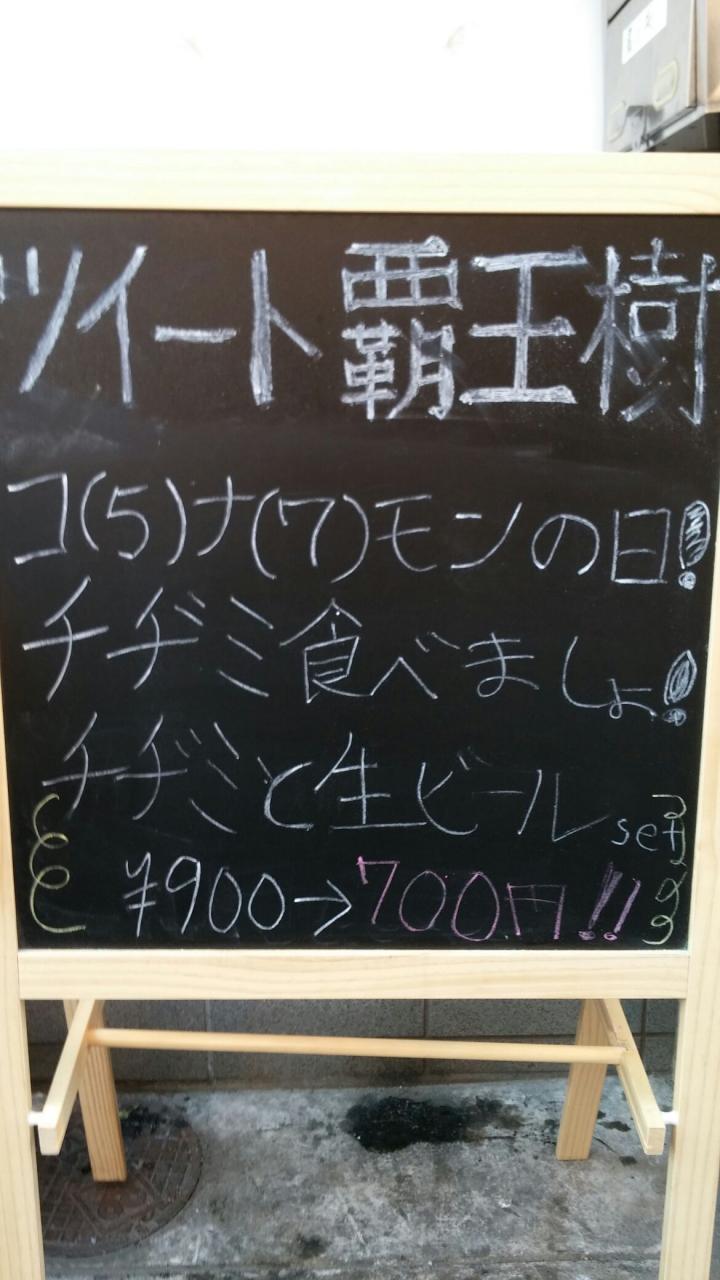 ツイート覇王樹
コ(5)ナ(7)モンの日!
チヂミ食べましょ!
チヂミと生ビールset
¥900→700円!!